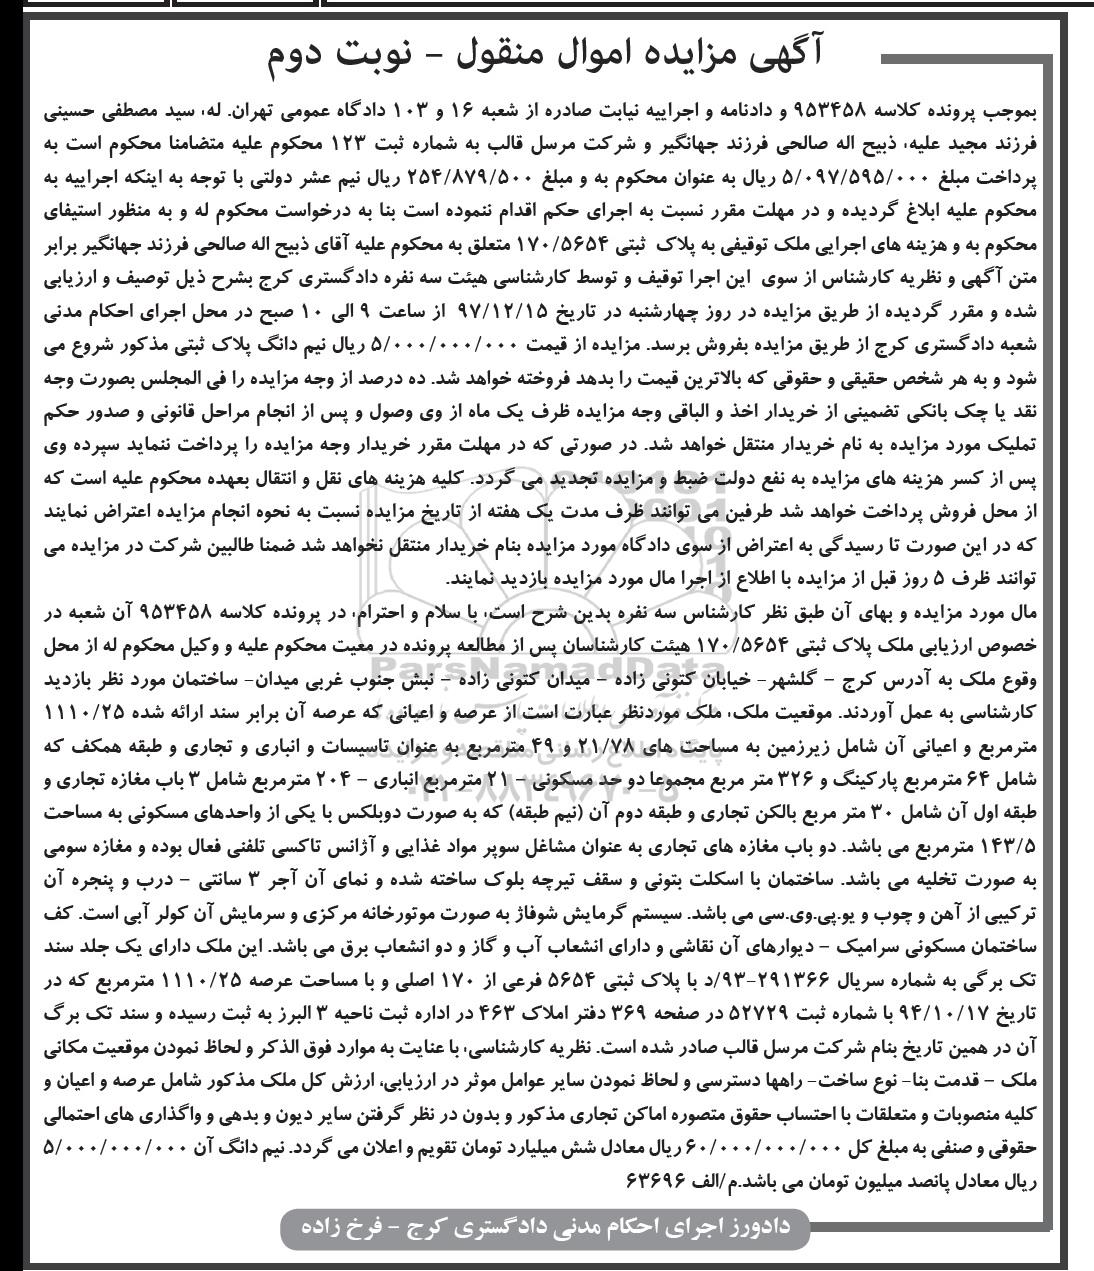 آگهی مزایده اموال منقول - نوبت دوم
بموجب پرونده کلاسه ۹۵۳۴۵۸ و دادنامه و اجراییه نیابت صادره از شعبه ۱۶ و ۱۰۳ دادگاه عمومی تهران. له، سید مصطفی حسینی
فرزند مجید علیه، ذبیح اله صالحی فرزند جهانگیر و شرکت مرسل قالب به شماره ثبت ۱۲۳ محکوم علیه متضامنا محکوم است به
پرداخت مبلغ ۵/۰۹۷/۵۹۵/۰۰۰ ریال به عنوان محکوم به و مبلغ ۲۵۴/۸۷۹/۵۰۰ ریال نیم عشر دولتی با توجه به اینکه اجراییه به
محکوم علیه ابلاغ گردیده و در مهلت مقرر نسبت به اجرای حکم اقدام ننموده است بنا به درخواست محکوم له و به منظور استیفای
محکوم به و هزینه های اجرایی ملک توقیفی به پلاک ثبتی ۱۷۰/۵۶۵۴ متعلق به محکوم علیه آقای ذبیح اله صالحی فرزند جهانگیر برابر
متن آگهی و نظریه کارشناس از سوی این اجرا توقیف و توسط کارشناسی هیئت سه نفره دادگستری کرج بشرح ذیل توصیف و ارزیابی
شده و مقرر گردیده از طریق مزایده در روز چهارشنبه در تاریخ ۹۷/۱۲/۱۵ از ساعت ۹ الی ۱۰ صبح در محل اجرای احکام مدنی
شعبه دادگستری کرج از طریق مزایده بفروش برسد. مزایده از قیمت ۵/۰۰۰/۰۰۰/۰۰۰ ریال نیم دانگ پلاک ثبتی مذکور شروع می
شود و به هر شخص حقیقی و حقوقی که بالاترین قیمت را بدهد فروخته خواهد شد. ده درصد از وجه مزایده را فی المجلس بصورت وجه
نقد یا چک بانکی تضمینی از خریدار اخذ و الباقی وجه مزایده ظرف یک ماه از وی وصول و پس از انجام مراحل قانونی و صدور حکم
تملیک مورد مزایده به نام خریدار منتقل خواهد شد. در صورتی که در مهلت مقرر خریدار وجه مزایده را پرداخت ننماید سپرده وی
پس از کسر هزینه های مزایده به نفع دولت ضبط و مزایده تجدید می گردد. کلیه هزینه های نقل و انتقال بعهده محکوم علیه است که
از محل فروش پرداخت خواهد شد طرفین می توانند ظرف مدت یک هفته از تاریخ مزایده نسبت به نحوه انجام مزایده اعتراض نمایند
که در این صورت تا رسیدگی به اعتراض از سوی دادگاه مورد مزایده بنام خریدار منتقل نخواهد شد ضمنا طالبین شرکت در مزایده می
توانند ظرف ۵ روز قبل از مزایده با اطلاع از اجرا مال مورد مزایده بازدید نمایند.
مال مورد مزایده و بهای آن طبق نظر کارشناس سه نفره بدین شرح است، با سلام و احترام، در پرونده کلاسه ۹۵۳۴۵۸ آن شعبه در
خصوص ارزیابی ملک پلاک ثبتی ۱۷۰/۵۶۵۴ هیئت کارشناسان پس از مطالعه پرونده در معیت محکوم علیه و وکیل محکوم له از محل
وقوع ملک به آدرس کرج - گلشهر- خیابان کتونی زاده - میدان کتونی زاده - نبش جنوب غربی میدان- ساختمان مورد نظر بازدید
کارشناسی به عمل آوردند. موقعیت ملک، ملک موردنظر عبارت است از عرصه و اعیانی که عرصه آن برابر سند ارائه شده ۱۱۱۰/۲۵
مترمربع و اعیانی آن شامل زیرزمین به مساحت های ۲۱/۷۸ و ۴۹ مترمربع به عنوان تاسیسات و انباری و تجاری و طبقه همکف که
شامل ۶۴ مترمربع پارکینگ و ۳۲۶ متر مربع مجموعا دو حد مسکونی - ۲۱ مترمربع انباری - ۲۰۴ مترمربع شامل ۳ باب مغازه تجاری و
طبقه اول آن شامل ۳۰ متر مربع بالکن تجاری و طبقه دوم آن (نیم طبقه) که به صورت دوبلکس با یکی از واحدهای مسکونی به مساحت
۱۴۳/۵ مترمربع می باشد. دو باب مغازه های تجاری به عنوان مشاغل سوپر مواد غذایی و آژانس تاکسی تلفنی فعال بوده و مغازه سومی
به صورت تخلیه می باشد. ساختمان با اسکلت بتونی و سقف تیرچه بلوک ساخته شده و نمای آن آجر ۳ سانتی - درب و پنجره آن
ترکیبی از آهن و چوب و یو.پی.وی.سی می باشد. سیستم گرمایش شوفاژ به صورت موتورخانه مرکزی و سرمایش آن کولر آبی است. کف
ساختمان مسکونی سرامیک - دیوارهای آن نقاشی و دارای انشعاب آب و گاز و دو انشعاب برق می باشد. این ملک دارای یک جلد سند
تک برگی به شماره سریال ۲۹۱۳۶۶-۹۳/د با پلاک ثبتی ۵۶۵۴ فرعی از ۱۷۰ اصلی و با مساحت عرصه ۱۱۱۰/۲۵ مترمربع که در
تاریخ ۹۴/۱۰/۱۷ با شماره ثبت ۵۲۷۲۹ در صفحه ۳۶۹ دفتر املاک ۴۶۳ در اداره ثبت ناحیه ۳ البرز به ثبت رسیده و سند تک برگ
آن در همین تاریخ بنام شرکت مرسل قالب صادر شده است. نظریه کارشناسی، با عنایت به موارد فوق الذکر و لحاظ نمودن موقعیت مکانی
ملک - قدمت بنا- نوع ساخت- راهها دسترسی و لحاظ نمودن سایر عوامل موثر در ارزیابی، ارزش کل ملک مذکور شامل عرصه و اعیان و
کلیه منصوبات و متعلقات با احتساب حقوق متصوره اماکن تجاری مذکور و بدون در نظر گرفتن سایر دیون و بدهی و واگذاری های احتمالی
حقوقی و صنفی به مبلغ کل ۶۰/۰۰۰/۰۰۰/۰۰۰ ریال معادل شش میلیارد تومان تقویم و اعلان می گردد. نیم دانگ آن ۵/۰۰۰/۰۰۰/۰۰۰
ریال معادل پانصد میلیون تومان می باشد.م/الف ۶۳۶۹۶
دادورز اجرای احکام مدنی دادگستری کرج - فرخ زاده
ParsNamadData
پایگاه اطلاع رسانی مناقصه و مزایده
۰۲۱-۸۸۳۴۹۶۷۰-۵